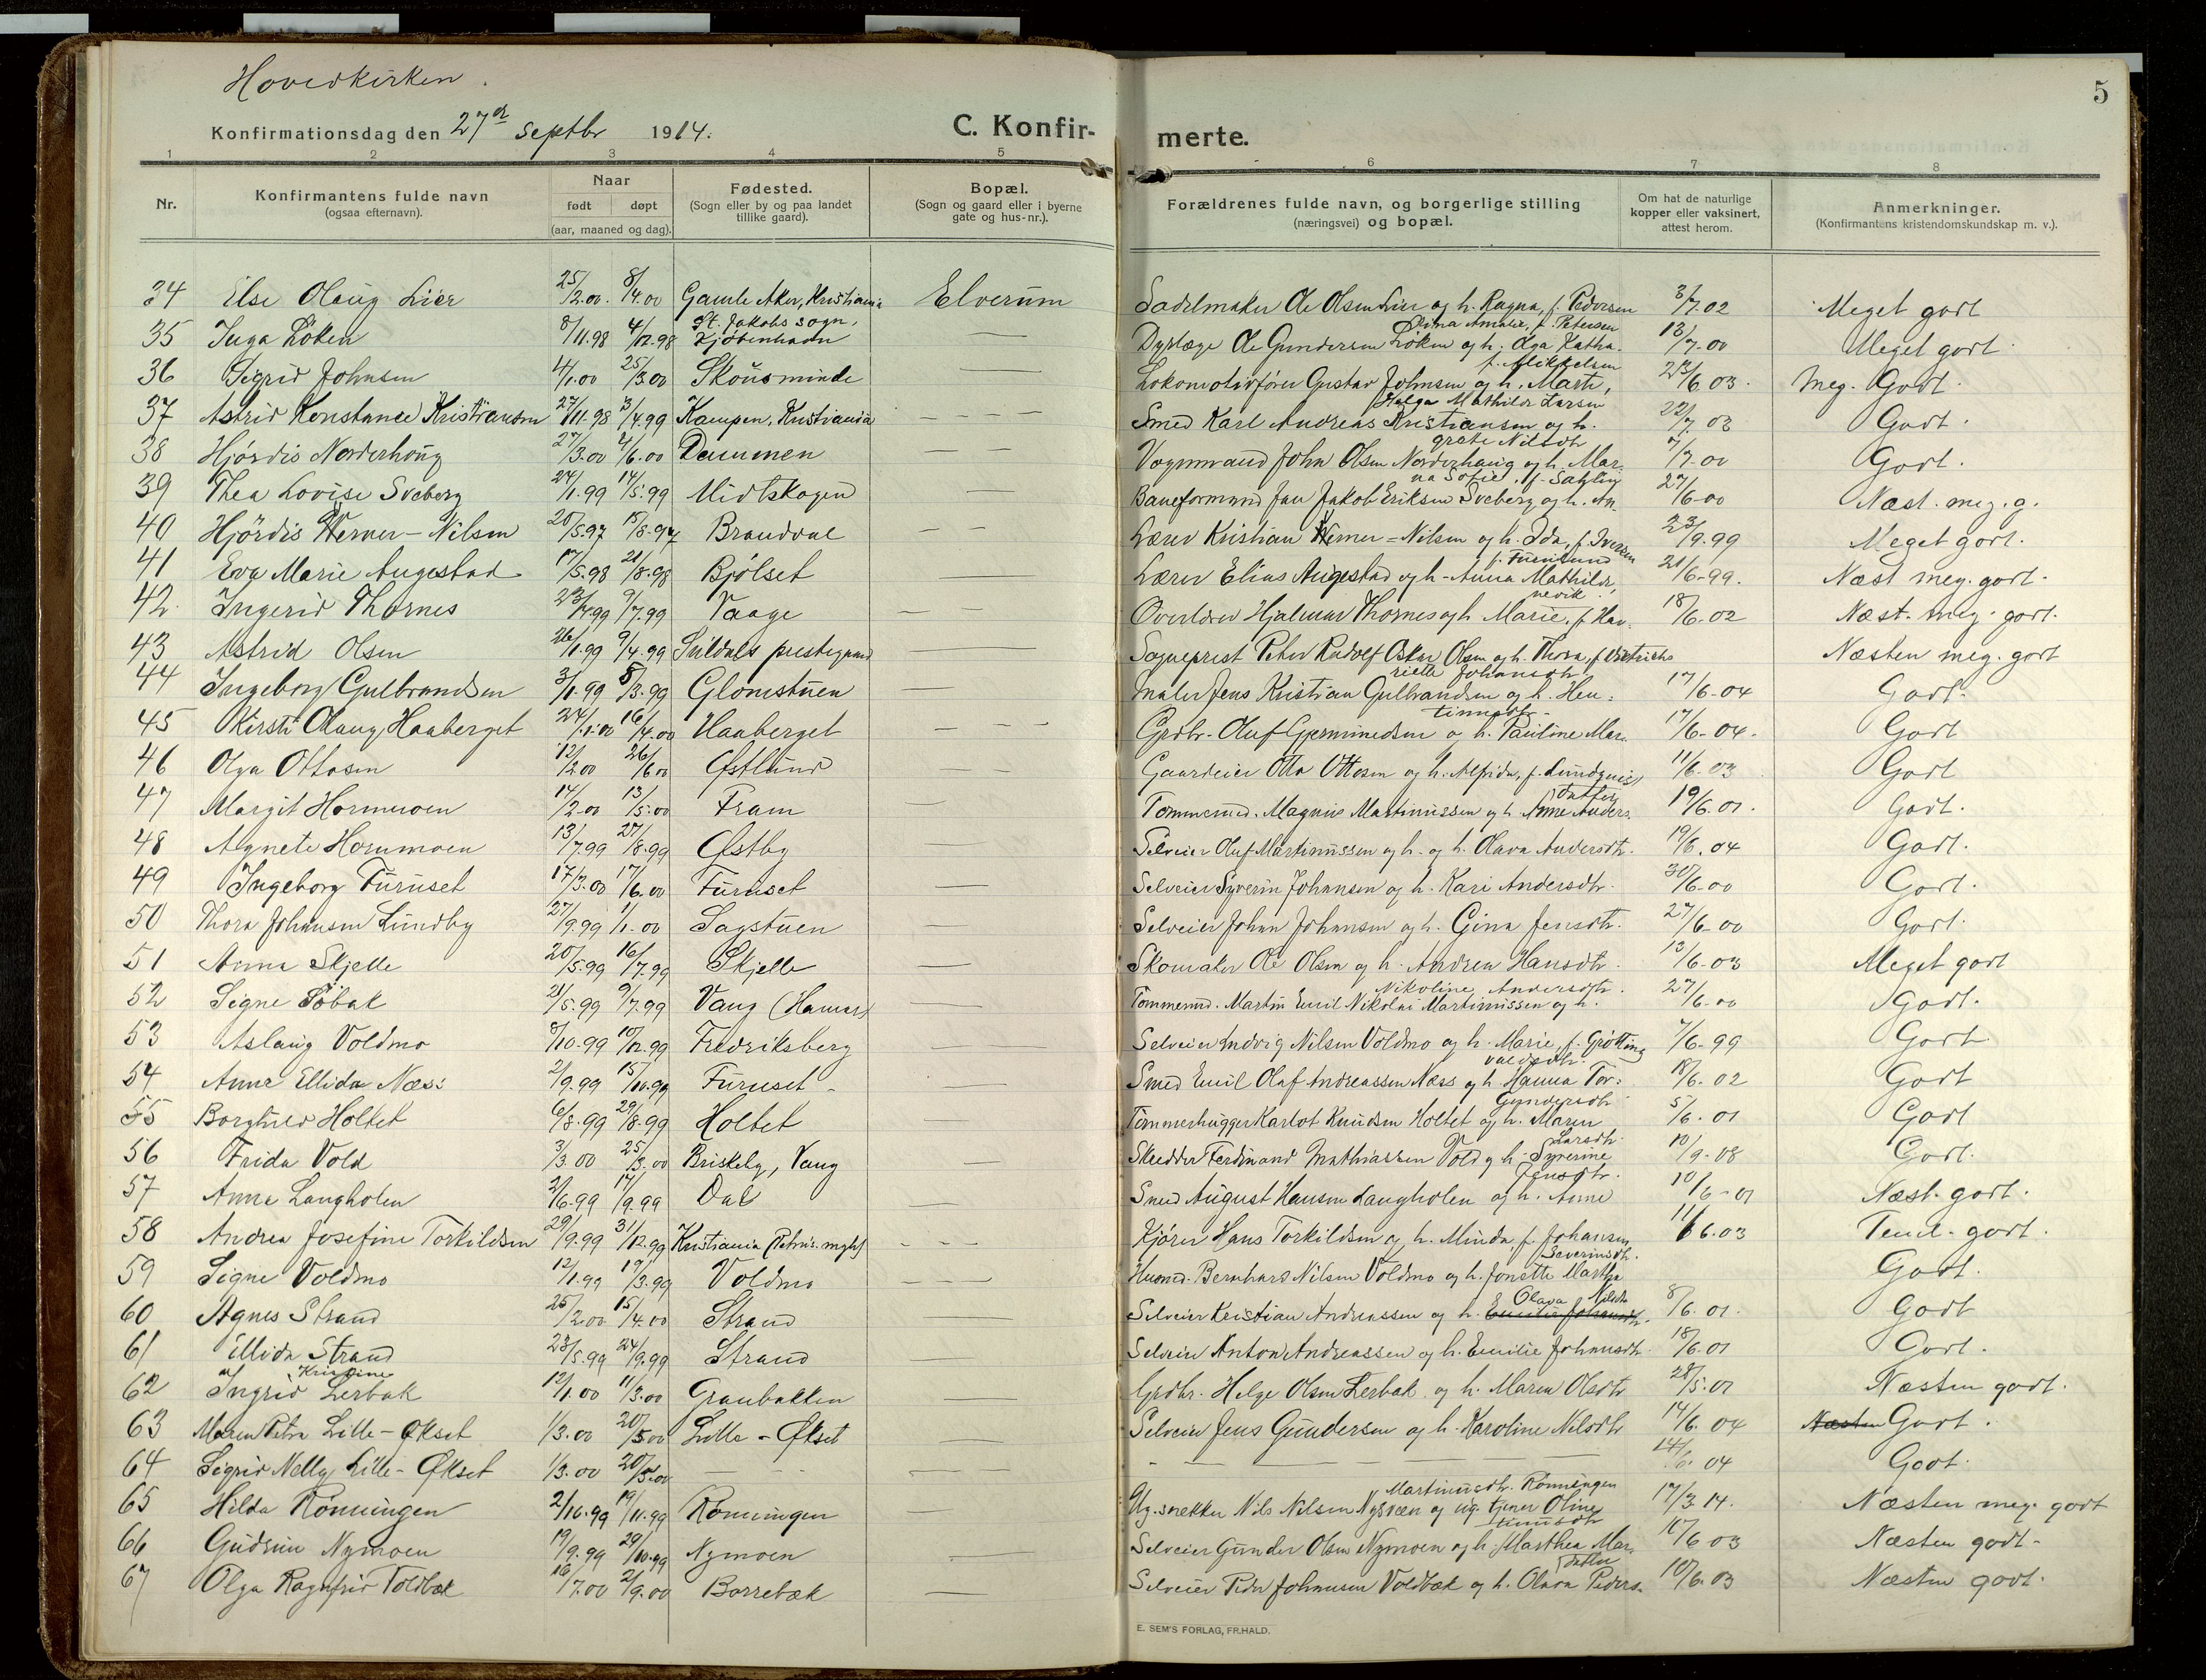 Hovedkirken.
5
Konfirmationsdag den 27de septbr 1914.
C. Konfir-merte.
1 2 3 4 5 6 7 8
Nr.
Konfirmantens fulde navn
(ogsaa efternavn).
Naar
født døpt
(aar, maaned og dag).
Fødested.
(Sogn eller by og paa landet
tillike gaard).
Bopæl.
(Sogn og gaard eller i byerne
gate og hus-nr.).
Forældrenes fulde navn, og borgerlige stilling
(næringsvei) og bopæl.
Om hat de naturlige
kopper eller vaksinert,
attest herom.
Anmerkninger.
(Konfirmantens kristendomskundskap m. v.).
34 Else Olaug Lier 25/2.00. 8/4.00 Gamle Aker, Kristiania Elverum Sadelmaker Ole Olsen Lier og h. Ragna, f. Pedersen 3/7.02 Meget godt
35 Inga Løken 8/11.98 4/12.98 St. Jakobs sogn, Kjøbenhavn — Dyrlæge Ole Gundersen Løken og h. Olga Katharina Amalie, f. Petersen 13/7-00 Meget godt
36 Sigrid Johnsen 4/1.00 25/3.00 Skousminde — Lokomotivfører Gustav Johnsen og h. Marte, f. Mikkelsen 23/6 03. Meg. Godt.
37 Astrid Konstance Kristiansen 27/11.98 3/4.99 Kampen, Kristiania — Smed Karl Andreas Kristiansen og h. Helga Mathilde Larsen 22/7. 03 Godt.
38 Hjørdis Norderhaug 27/3.00 4/6.00 Dammen — Vognmand John Olsen Norderhaug og h. Margrete Nilsdtr 7/7-00 Godt.
39 Thea Lovise Sveberg 24/1.99 14/5.99 Midtskogen — Baneformand Jan Jakob Eriksen Sveberg og h. Anna Sofie, f. Sætling 27/6-00 Næst. meg. g.
40 Hjørdis Werner-Nilsen 20/5.97 15/8.97 Brandval — Lærer Kristian Werner=Nilsen og h. Ida, f. Iversen 23/9.99 Meget godt.
41 Eva Marie Augestad 17/5.98 21/8.98 Bjølset — Lærer Elias Augestad og h. Anna Mathilde, f. Furulund 21/6-99. Næst meg. godt.
42. Ingerid Thornes 23/4.99 9/7.99 Vaage — Overlærer Hjalmar Thornes og h. Marie, f. Havnevik 18/6.02 Næst. meg. godt.
43 Astrid Olsen 26/1.99 9/4.99 Suldals prestegaard — Sogneprest Peter Rudolf Oskar Olsen og h. Thora, f. Dietrichs Næsten meg. godt
44 Ingeborg Gulbrandsen 3/1.99 5/3.99 Glomstuen — Maler Jens Kristian Gulbrandsen og h. Henriette Johansdtr. 17/6-04 Godt.
45 Kirsti Olaug Haaberget 24/1.00 16/4.00 Haaberget — Grdbr. Oluf Gjermundsen og h. Pauline Martinusdtr. 17/6-04. Godt
46 Olga Ottosen 12/2.00 26/6.00 Østlund — Gaardeier Otto Ottosen og h. Alfrida, f. Lundqvist 11/6.03 Godt
47 Margit Hornmoen 14/2.00 13/5.00 Fram — Tømmermd. Magnus Martinussen og h. Anne Andersdatter 19/6.01. Godt.
48 Agnete Hornmoen 13/7.99 27/8.99 Østby — Selveier Oluf Martinussen og h. og h. Olava Andersdtr. 19/6.04 Godt.
49 Ingeborg Furuset 17/3.00 17/6.00 Furuset — Selveier Syverin Johansen og h. Kari Andersdtr. 30/6-00 Godt.
50 Thora Johansen Lundby 27/9.99 1/1.00 Sagstuen — Selveier Johan Johansen og h. Gina Jensdtr. 27/6-00 Godt.
51 Anna Skjelle 20/5.99 16/7.99 Skjelle — Skomaker Ole Olsen og h. Andrea Hansdtr. 13/6-03 Meget godt
52 Signe Søbak 21/5.99 9/7.99 Vang (Hamar) — Tømmermd. Martin Emil Nikolai Martinussen og h. Nikoline Andersdtr. 27/6.00 Godt.
53 Aslaug Voldmo 8/10.99 10/12.99 Fredriksberg — Selveier Ludvig Nilsen Voldmo og h. Marie, f. Grøtting 7/6-99 Godt
54 Anne Ellida Næss 2/9.99 15/10.99 Furuset — Smed Emil Olaf Andreassen Næss og h. Hanna Torvaldsdtr. 18/6.02 Godt
55 Borghild Holtet 6/8.99 29/8.99 Holtet — Tømmerhugger Karlot Knudsen Holtet og h. Maren Gundersdtr 5/6.01 Godt
56 Frida Vold 3/3.00 25/3.00 Briskeby, Vang — Skredder Ferdinand Mathiassen Vold og h. Syverine Larsdtr. 10/9-08 Godt.
57 Anna Langholen 2/6.99 17/9.99 Dal — Smed August Hansen Langholen og h. Anne Jensdtr. 10/6-01 Næst. godt.
58 Andrea Josefine Torkildsen 29/9.99 31/12.99 Kristiania (Petrus mgh) — Kjører Hans Torkildsen og h. Minda, f. Johansen 11/6.03 Teml. godt.
59 Signe Voldmo 12/1.99 19/3.99 Voldmo — Husmd. Bernhard Nilsen Voldmo og h. Jonette Martha Severinsdtr. Godt.
60 Agnes Strand 25/2.00 15/4.00 Strand — Selveier Kristian Andreassen og h. Emilie Johansdtr. Olava Nilsdtr 8/6.01. Godt
61 Ellida Strand 23/5.99 24/9.99 Strand — Selveier Anton Andreassen og h. Emilie Johansdtr. 18/6.01 Godt.
62 Ingrid Kristine Lerbak 12/1.00 11/3.00 Graubakken — Grdbr. Helge Olsen Lerbak og h. Maren Olsdtr 28/5.01 Næsten godt.
63 Maren Petra Lille-Økset 1/3.00 20/5.00 Lille-Økset — Selveier Jens Gundersen og h. Karoline Nilsdtr 14/6.04 Næsten Godt.
64 Sigrid Nelly Lille-Økset 1/3.00 20/5.00 — — — 14/6.04 Godt.
65 Hilda Rønningen 2/10.99 19/11.99 Rønningen — Ug. snekker Nils Nilsen Nysveen og ug. tjener Oline Martinusdtr. Rønningen 17/3.14. Næsten meg. godt
66 Gudrun Nymoen 19/9.99 29/10.99 Nymoen — Selveier Gunder Olsen Nymoen og h. Marthea Martinusdtr 10/6 03 Næsten godt.
67 Olga Ragnfrid Voldbæk 16/7.00 2/9.00 Borrebæk — Selveier Peder Johansen Voldbæk og h. Olava Pedersdatter 10/6.03 Næsten godt.
E. SEM'S FORLAG, FR.HALD.